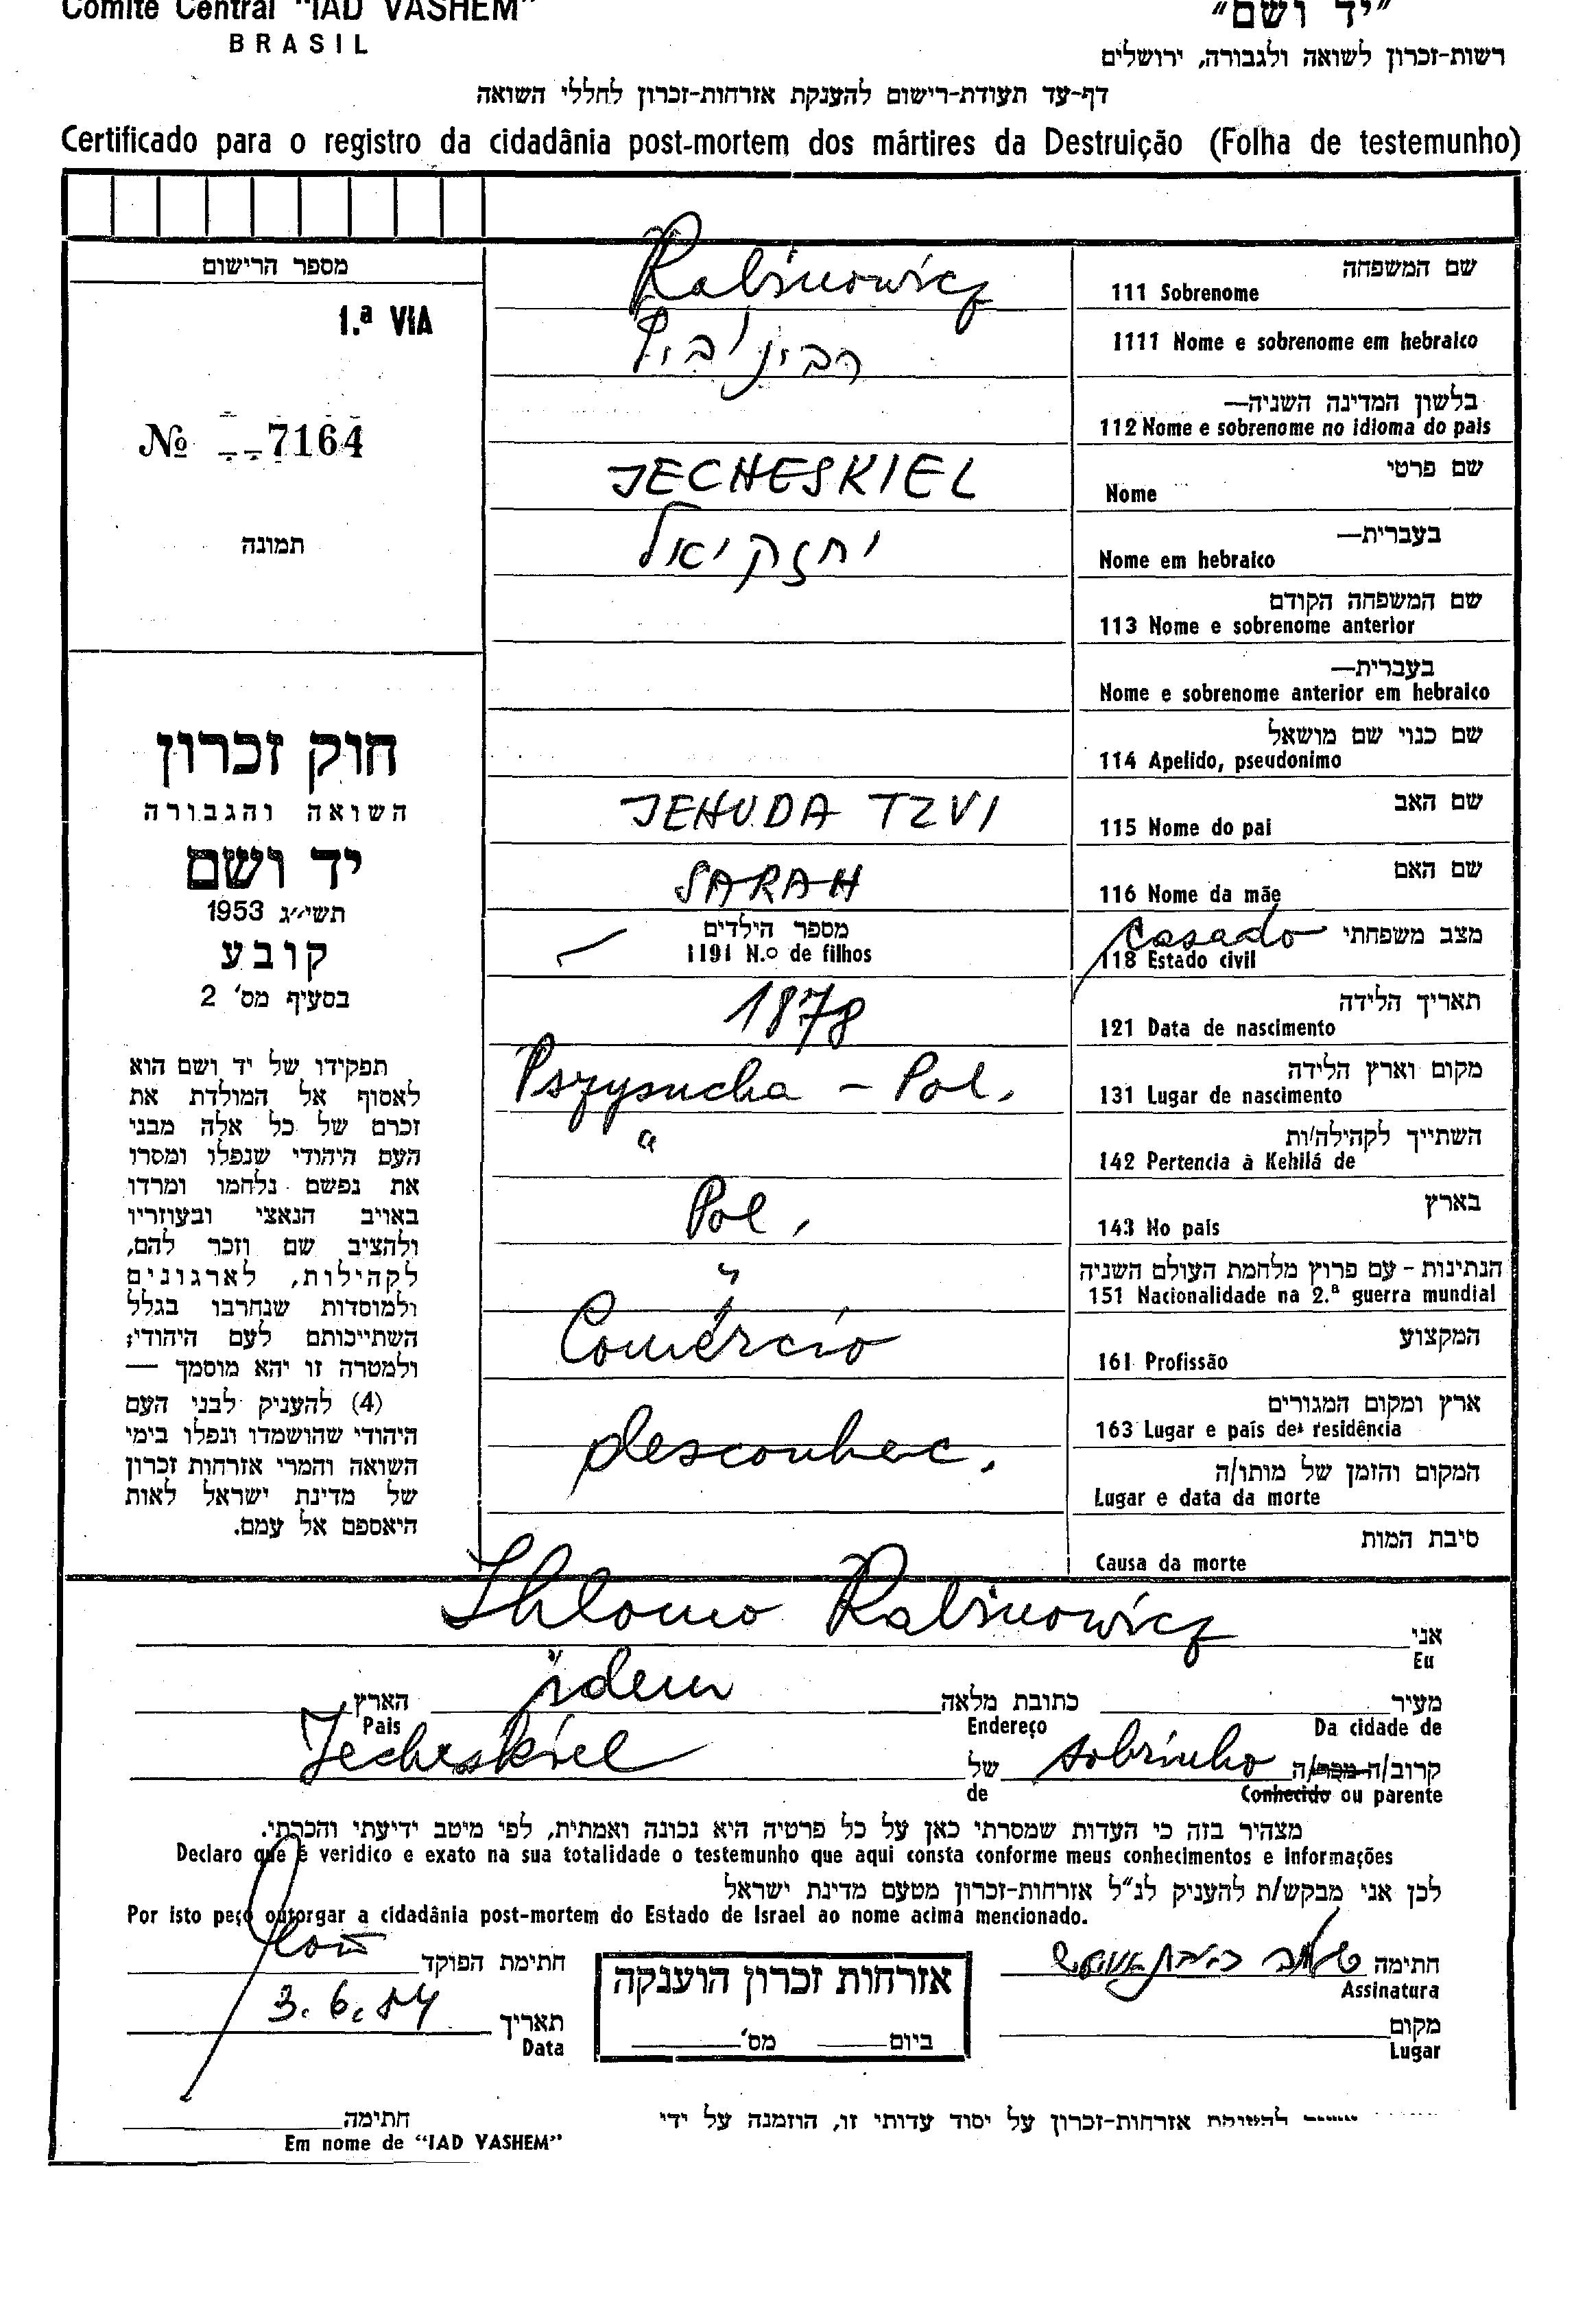 Comité Central "IAD VASHEM"
BRASIL
"יד ושם"
רשות-זכרון לשואה ולגבורה, ירושלים
דף-עד תעודת-רישום להענקת אזרחות-זכרון לחללי השואה
Certificado para o registro da cidadânia post-mortem dos mártires da Destruição (Folha de testemunho)
מספר הרישום
1.ª VIA
Nº 7164
תמונה
חוק זכרון
השואה והגבורה
יד ושם
תשי״ג 1953
קובע
בסעיף מס' 2
תפקידו של יד ושם הוא
לאסוף אל המולדת את
זכרם של כל אלה מבני
העם היהודי שנפלו ומסרו
את נפשם נלחמו ומרדו
באויב הנאצי ובעוזריו
ולהציב שם וזכר להם,
לקהילות, לארגונים
ולמוסדות שנחרבו בגלל
השתייכותם לעם היהודי;
ולמטרה זו יהא מוסמך —
(4) להעניק לבני העם
היהודי שהושמדו ונפלו בימי
השואה והמרי אזרחות זכרון
של מדינת ישראל לאות
היאספם אל עמם.
שם המשפחה
111 Sobrenome Rabinowicz
1111 Nome e sobrenome em hebraico רבינוביץ
בלשון המדינה השניה—
112 Nome e sobrenome no idioma do pais
שם פרטי
Nome JECHESKIEL
בעברית—
Nome em hebraico יחזקיאל
שם המשפחה הקודם
113 Nome e sobrenome anterior
בעברית—
Nome e sobrenome anterior em hebraico
שם כנוי שם מושאל
114 Apelido, pseudonimo
שם האב
115 Nome do pai JEHUDA TZVI
שם האם
116 Nome da mãe SARAH
מצב משפחתי
118 Estado civil casado
מספר הילדים
1191 N.º de filhos
תאריך הלידה
121 Data de nascimento 1878
מקום וארץ הלידה
131 Lugar de nascimento Pszysucha - Pol.
השתייך לקהילה/ות
142 Pertencia à Kehilá de "
בארץ
143 No pais Pol.
הנתינות - עם פרוץ מלחמת העולם השניה
151 Nacionalidade na 2.ª guerra mundial "
המקצוע
161 Profissão Comércio
ארץ ומקום המגורים
163 Lugar e país de residência desconhec.
המקום והזמן של מותו/ה
Lugar e data da morte
סיבת המות
Causa da morte
אני
Eu Shlomo Rabinowicz
מעיר כתובת מלאה idem הארץ
Da cidade de Endereço Pais
קרוב/ה מכר/ה sobrinho של Jecheskiel
Conhecido ou parente de
מצהיר בזה כי העדות שמסרתי כאן על כל פרטיה היא נכונה ואמתית, לפי מיטב ידיעתי והכרתי.
Declaro que é veridico e exato na sua totalidade o testemunho que aqui consta conforme meus conhecimentos e informações
לכן אני מבקש/ת להעניק לנ"ל אזרחות-זכרון מטעם מדינת ישראל
Por isto peço outorgar a cidadânia post-mortem do Estado de Israel ao nome acima mencionado.
חתימה
Assinatura
אזרחות זכרון הוענקה
ביום מס'
חתימת הפוקד
מקום
Lugar
תאריך 3.6.84
Data
אזרחות-זכרון על יסוד עדותי זו, הוזמנה על ידי
חתימה
Em nome de "IAD VASHEM"